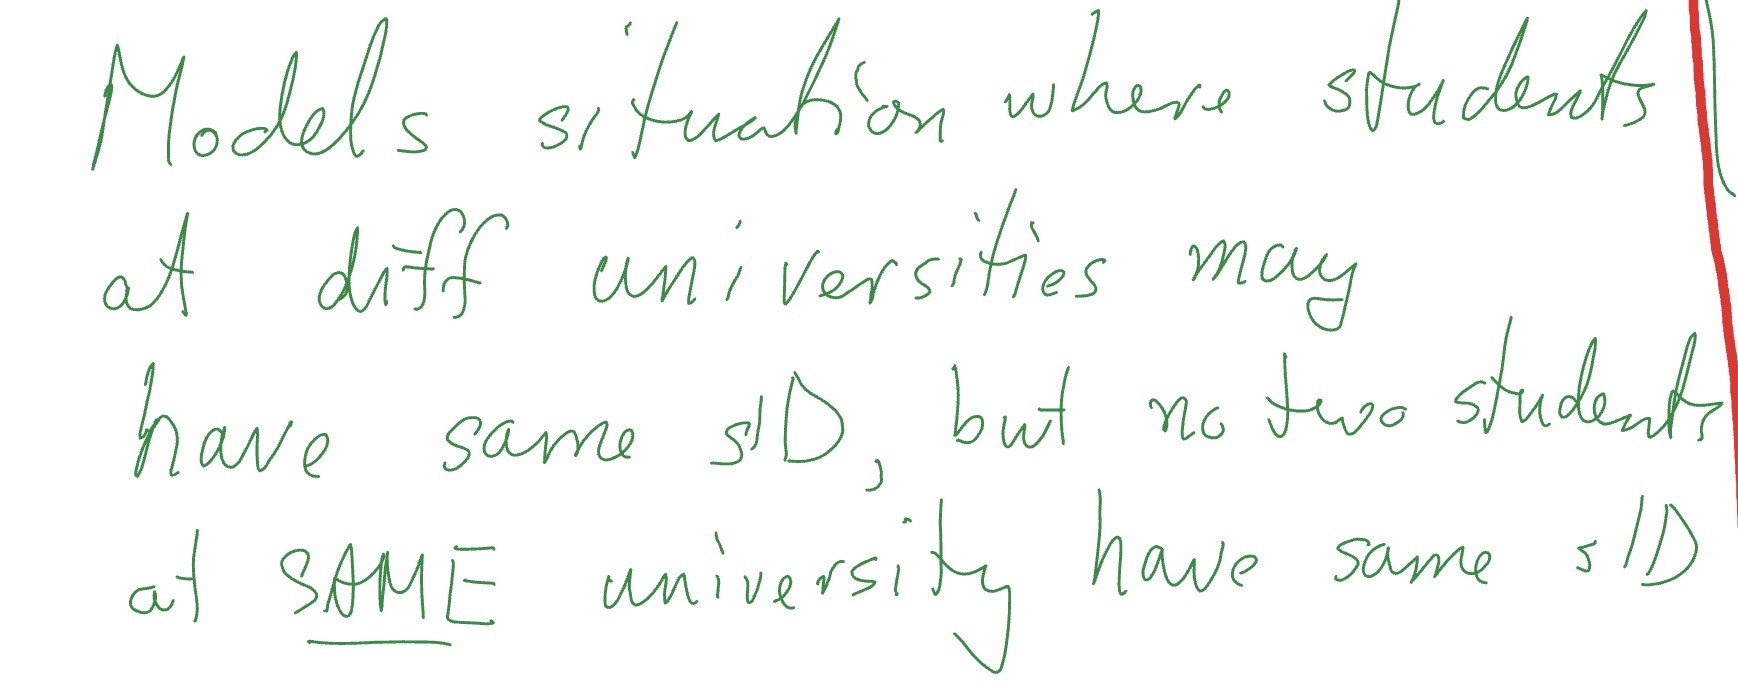 Models situation where students
at diff universities may
have same sID, but no two students
at SAME university have same sID